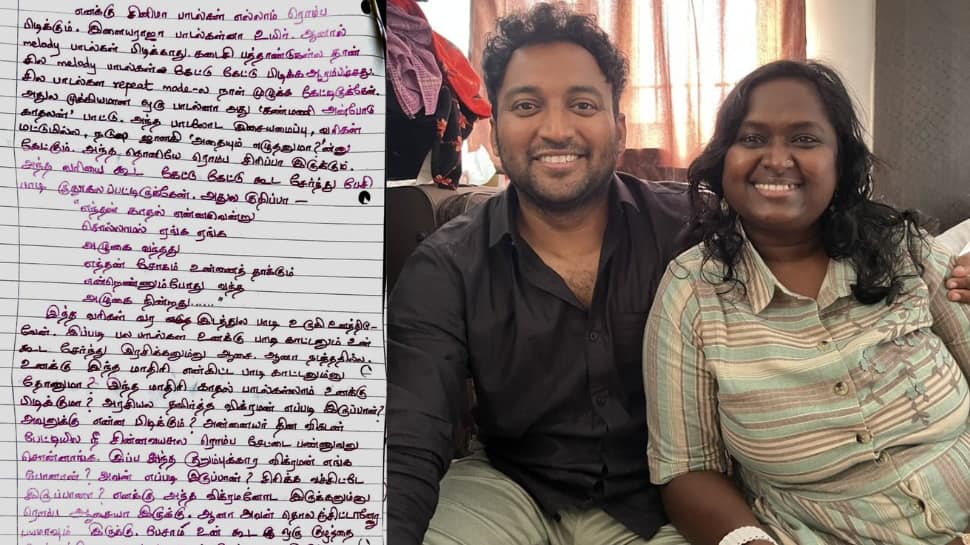 எனக்கு சினிமா பாடல்கள் எல்லாம் ரொம்ப
பிடிக்கும். இளையராஜா பாடல்கள்னா உயிர். ஆனால்
melody பாடல்கள் பிடிக்காது. கடைசி பத்தாண்டுகள்ல தான்
சில melody பாடல்கள கேட்டு கேட்டு பிடிக்க ஆரம்பிச்சது.
சில பாடல்கள repeat mode-ல நாள் முழுக்க கேட்டிருக்கேன்.
அதுல முக்கியமான ஒரு பாடல்னா அது 'கண்மணி அன்போடு
காதலன்' பாட்டு. அந்த பாடலோட இசையமைப்பு, வரிகள்
மட்டுமில்ல, நடுவுல ஜானகி 'அதையும் எழுதணுமா?'ன்னு
கேட்கும். அந்த தொனியே ரொம்ப சிரிப்பா இருக்கும்.
அந்த வரியை கூட கேட்டு கேட்டு கூட சேர்ந்து பேசி
பாடி குதூகலப்பட்டிருக்கேன். அதுல குறிப்பா –
"எந்தன் காதல் என்னவென்று
சொல்லாமல் ஏங்க ஏங்க
அழுகை வந்தது
எந்தன் சோகம் உன்னைத் தாக்கும்
என்றெண்ணும்போது வந்த
அழுகை நின்றது......"
இந்த வரிகள் வர இடத்துல பாடி உருகி
வேன். இப்படி பல பாடல்கள உனக்கு பாடி காட்டணும் உன்
கூட சேர்ந்து இரசிக்கணும்னு ஆசை. ஆனா நடத்ததில்ல.
உனக்கு இந்த மாதிரி என்கிட்ட பாடி காட்டணும்னு
தோணுமா? இந்த மாதிரி காதல் பாடல்கள்லாம் உனக்கு
பிடிக்குமா? அரசியல தவிர்த்த விக்ரமன் எப்படி இருப்பான்?
அவனுக்கு என்ன பிடிக்கும்? அன்னையர் தின விகடன்
பேட்டியில நீ சின்னவயசுல ரொம்ப சேட்டை பண்ணுவனு
சொன்னாங்க. இப்ப அந்த குறும்புக்கார விக்ரமன் எங்க
போனான்? அவன் எப்படி இருப்பான்? சிரிக்க வச்சிட்டே
இருப்பானா? எனக்கு அந்த விக்ரமனோட இருக்கணும்னு
ரொம்ப ஆசையா இருக்கு. ஆனா அவன் தொலஞ்சிட்டானோனு
பயமாவும் இருக்கு. பேசாம உன் கூட ஒரு குழந்தை